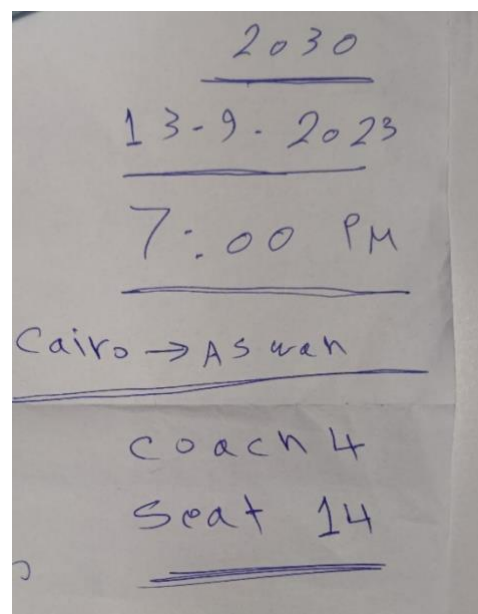 2030
13-9-2023
7:00 PM
Cairo → Aswan
coach 4
Seat 14